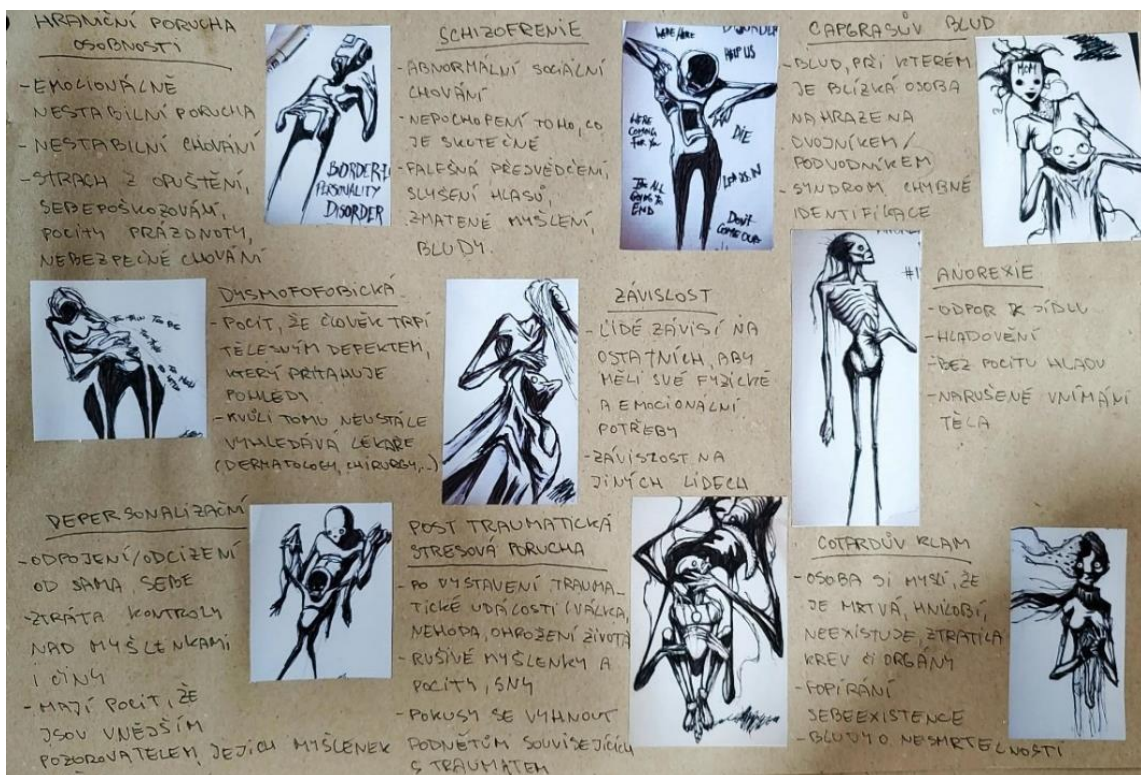 HRANIČNÍ PORUCHA
OSOBNOSTI
- EMOCIONÁLNĚ
NESTABILNÍ PORUCHA
- NESTABILNÍ CHOVÁNÍ
- STRACH Z OPUŠTĚNÍ,
SEBEPOŠKOZOVÁNÍ,
POCITY PRÁZDNOTY,
NEBEZPEČNÉ CHOVÁNÍ
BORDERLI
PERSONALITY
DISORDER
SCHIZOFRENIE
- ABNORMÁLNÍ SOCIÁLNÍ
CHOVÁNÍ
- NEPOCHOPENÍ TOHO, CO
JE SKUTEČNÉ
- FALEŠNÁ PŘESVĚDČENÍ,
SLYŠENÍ HLASŮ,
ZMATENÉ MYŠLENÍ,
BLUDY.
WE'RE HERE
HELP US
WE'RE
COMING
FOR YOU
DIE
LET US IN
GOING TO
END
DON'T
COME OUT
CAPGRASŮV BLUD
- BLUD, PŘI KTERÉM
JE BLÍZKÁ OSOBA
NAHRAZENA
DVOJNÍKEM/
PODVODNÍKEM
- SYNDROM CHYBNÉ
IDENTIFIKACE
MOM
DYSMOFOFOBICKÁ
- POCIT, ŽE ČLOVĚK TRPÍ
TĚLESNÝM DEFEKTEM,
KTERÝ PŘITAHUJE
POHLEDY
- KVŮLI TOMU NEUSTÁLE
VYHLEDÁVÁ LÉKAŘE
(DERMATOLOGY, CHIRURGY,..)
ZÁVISLOST
- LIDÉ ZÁVISÍ NA
OSTATNÍCH, ABY
MĚLI SVÉ FYZICKÉ
A EMOCIONÁLNÍ
POTŘEBY
- ZÁVISLOST NA
JINÝCH LIDECH
ANOREXIE
- ODPOR K JÍDLU
- HLADOVĚNÍ
- BEZ POCITU HLADU
- NARUŠENÉ VNÍMÁNÍ
TĚLA
DEPERSONALIZAČNÍ
- ODPOJENÍ/ODCIZENÍ
OD SAMA SEBE
- ZTRÁTA KONTROLY
NAD MYŠLENKAMI
I ČINY
- MAJÍ POCIT, ŽE
JSOU VNĚJŠÍM
POZOROVATELEM JEJICH MYŠLENEK
POST TRAUMATICKÁ
STRESOVÁ PORUCHA
- PO VYSTAVENÍ TRAUMA-
TICKÉ UDÁLOSTI (VÁLKA,
NEHODA, OHROŽENÍ ŽIVOTA
- RUŠIVÉ MYŠLENKY A
POCITY, SNY
- POKUSY SE VYHNOUT
PODNĚTŮM SOUVISEJÍCÍCH
S TRAUMATEM
COTARDŮV KLAM
- OSOBA SI MYSLÍ, ŽE
JE MRTVÁ, HNILOBÍ,
NEEXISTUJE, ZTRATILA
KREV ČI ORGÁNY
- POPÍRÁNÍ
SEBEEXISTENCE
- BLUDY O NESMRTELNOSTI